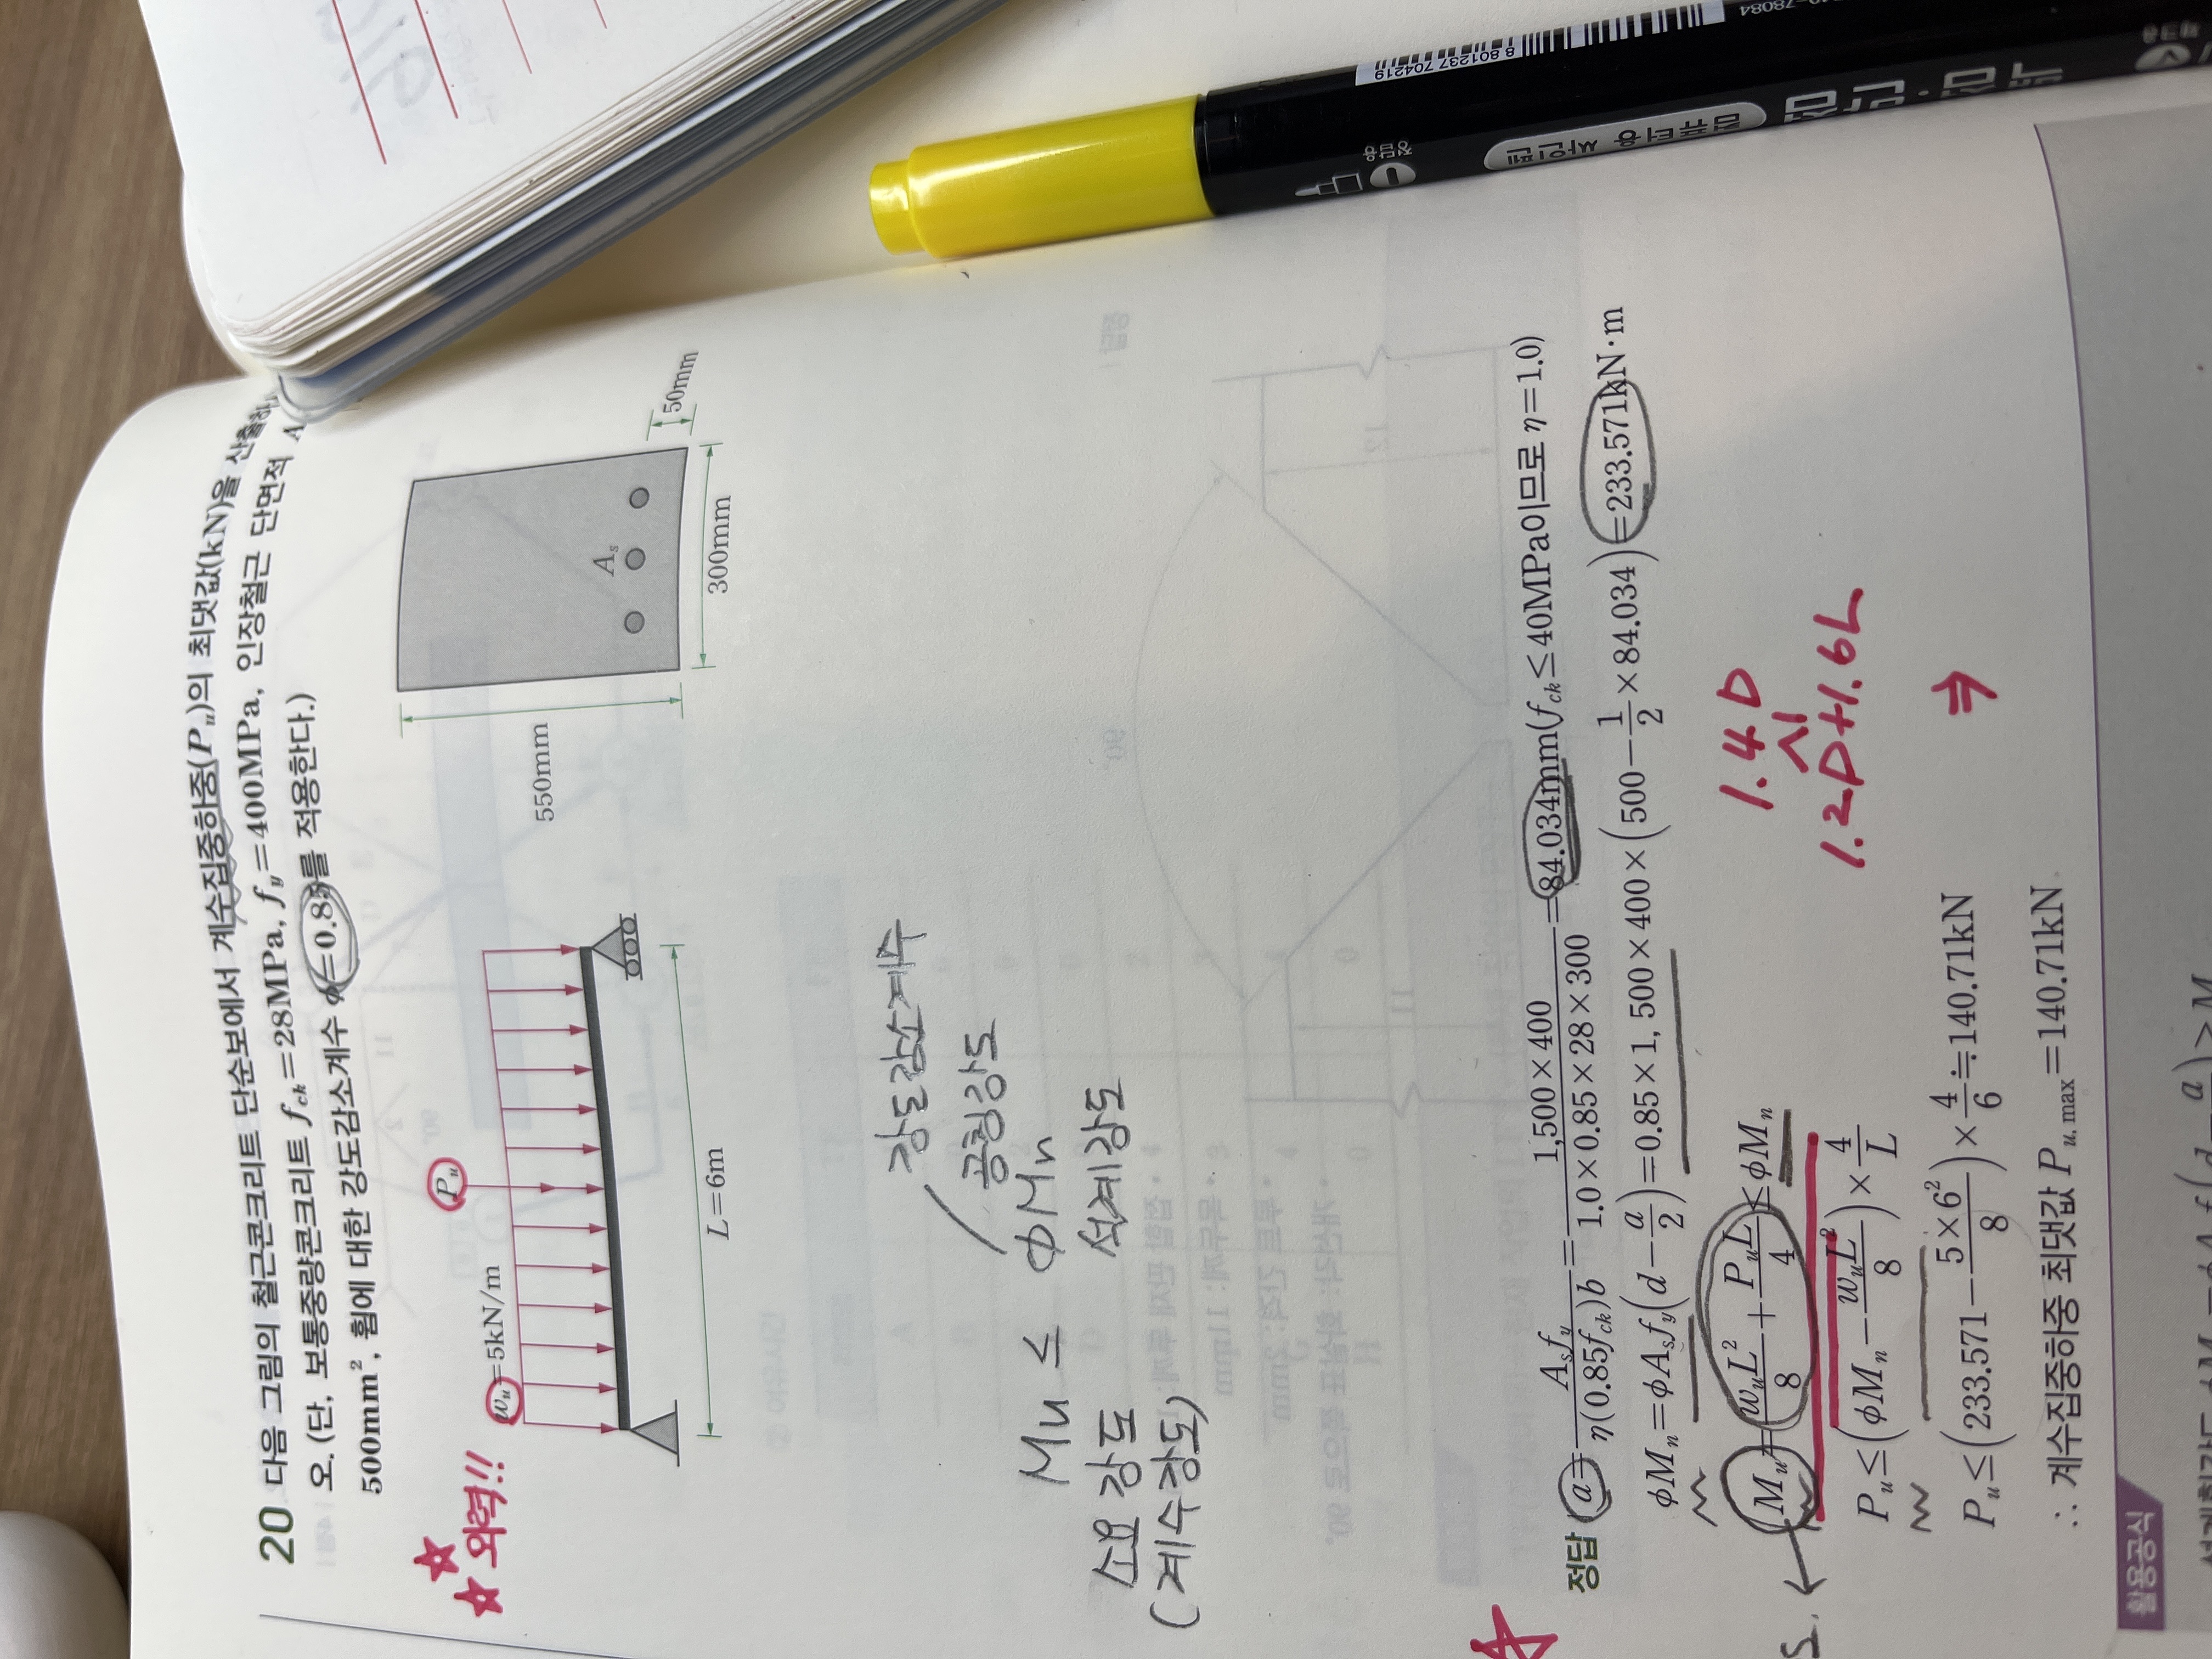 20 다음 그림의 철근콘크리트 단순보에서 계수집중하중(P_u)의 최댓값(kN)을 산출하
오. (단, 보통중량콘크리트 f_ck=28MPa, f_y=400MPa, 인장철근 단면적 A
500mm², 휨에 대한 강도감소계수 ϕ=0.85를 적용한다.)
☆☆ 외력!!
w_u=5kN/m
P_u
L=6m
550mm
A_s
300mm
50mm
강도감소계수
공칭강도
Mu ≤ ΦMn
소요강도 설계강도
(계수강도)
정답 a=A_s f_y/η(0.85f_ck)b=1,500×400/1.0×0.85×28×300=84.034mm(f_ck≤40MPa이므로 η=1.0)
ϕM_n=ϕA_s f_y(d-a/2)=0.85×1,500×400×(500-1/2×84.034)=233.571kN·m
M_u=w_uL²/8+P_uL/4≤ϕM_n
1.4D
시
1.2D+1.6L
P_u≤(ϕM_n-w_uL²/8)×4/L
⇒
P_u≤(233.571-5×6²/8)×4/6≒140.71kN
∴ 계수집중하중 최댓값 P_u,max=140.71kN
활용공식
8 801237 704219
78084
형광